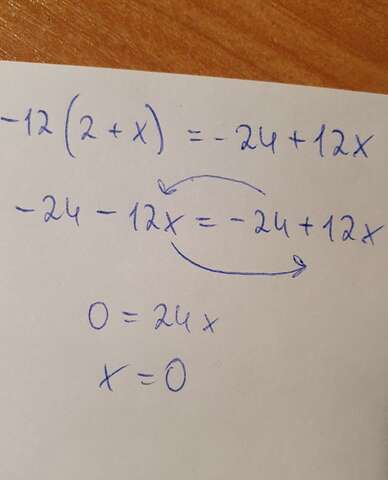 -12(2+x) = -24+12x
-24-12x = -24+12x
0 = 24x
x = 0